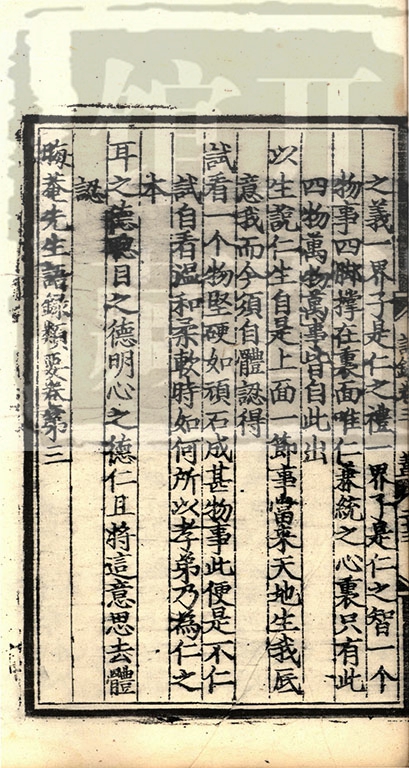 之義一界子是仁之禮一界子是仁之智一个
物事四脚撑在裏面唯仁兼統之心裏只有此
四物萬物萬事皆自此出
以生說仁生自是上面一節事當來天地生我底
意我而今須自體認得
試看一个物堅硬如頑石成甚物事此便是不仁
試自看溫和柔軟時如何所以孝弟乃為仁之
本
耳之德聰目之德明心之德仁且將這意思去體
認
晦菴先生語錄類要卷第三